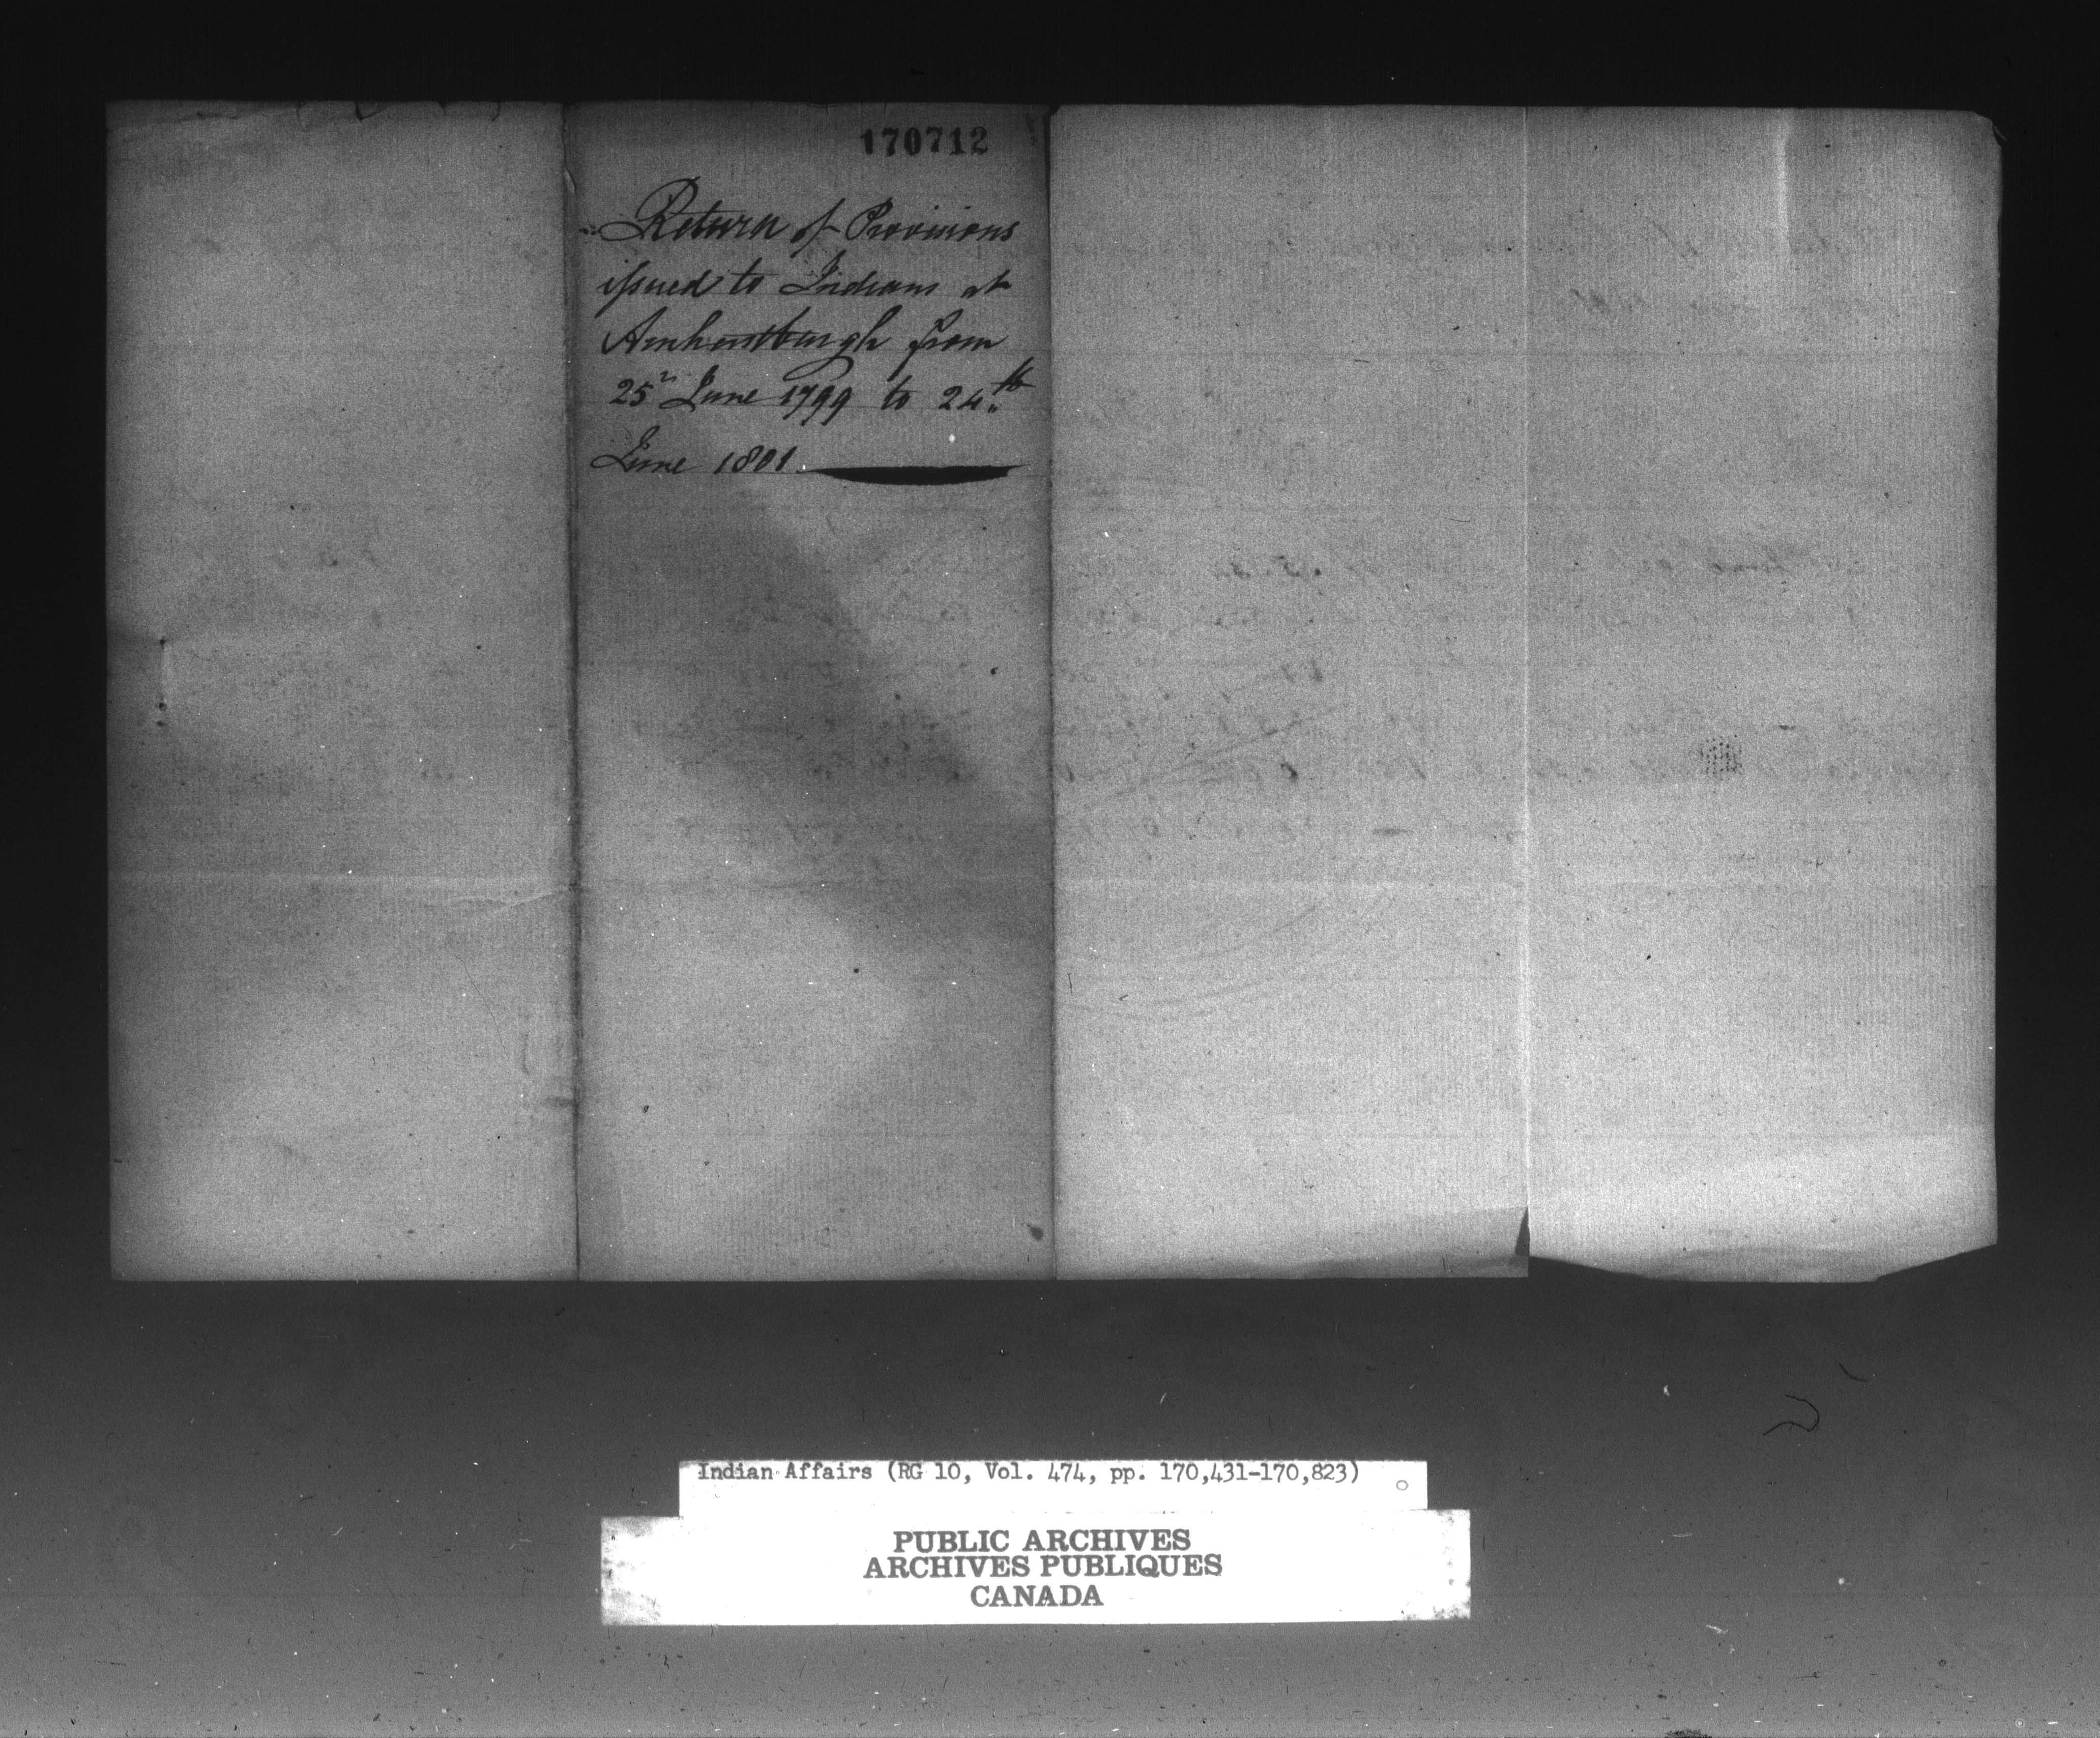 170712
Return of Provisions
issued to Indians at
Amherstburgh from
25th June 1799 to 24th
June 1801
Indian Affairs (RG 10, Vol. 474, pp. 170,431-170,823)
PUBLIC ARCHIVES
ARCHIVES PUBLIQUES
CANADA